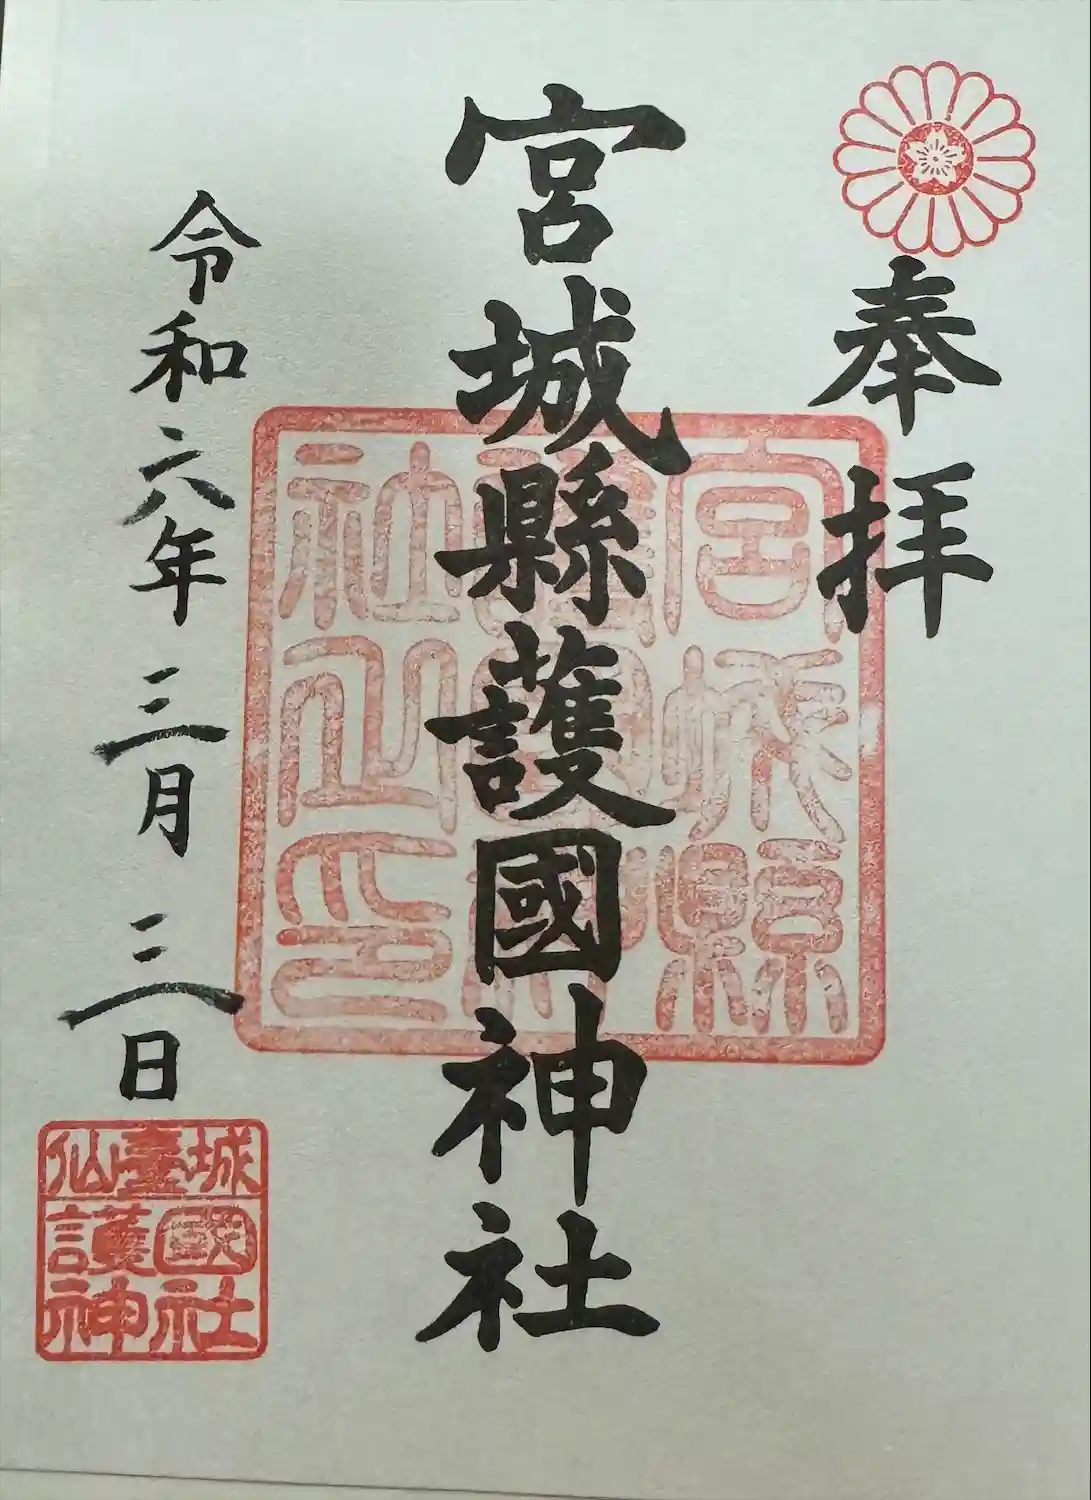 奉拝
宮城縣護國神社
宮城縣
護國神
社之印
令和六年三月三日
仙臺城
護國
神社